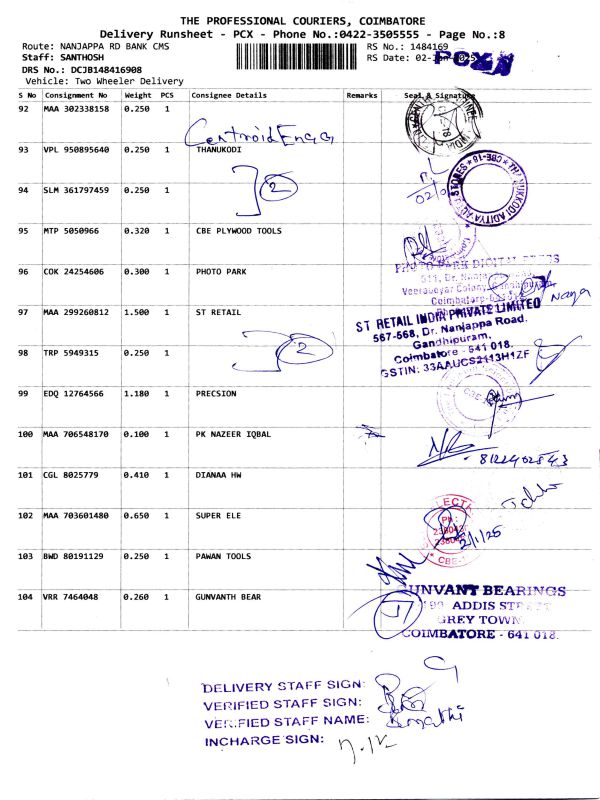 THE PROFESSIONAL COURIERS, COIMBATORE
Delivery Runsheet - PCX - Phone No.:0422-3505555 - Page No.:8
Route: NANJAPPA RD BANK CMS
RS No.: 1484169
Staff: SANTHOSH
RS Date: 02-Jan-2025
PCX
DRS No.: DCJB148416908
Vehicle: Two Wheeler Delivery
S No Consignment No Weight PCS Consignee Details Remarks Seal & Signature
92 MAA 302338158 0.250 1
Centroid Engg
93 VPL 950895640 0.250 1 THANUKODI
94 SLM 361797459 0.250 1
2
95 MTP 5050966 0.320 1 CBE PLYWOOD TOOLS
96 COK 24254606 0.300 1 PHOTO PARK
PHOTO PARK DIGITAL PRESS
Veerabuyar Colony, Gandhipuram
Coimbatore
97 MAA 299260812 1.500 1 ST RETAIL
ST RETAIL INDIA PRIVATE LIMITED
567-568, Dr. Nanjappa Road.
Gandhipuram,
Coimbatore - 641 018.
GSTIN: 33AAUCS2113H1ZF
98 TRP 5949315 0.250 1
2
99 EDQ 12764566 1.180 1 PRECSION
100 MAA 706548170 0.100 1 PK NAZEER IQBAL
101 CGL 8025779 0.410 1 DIANAA HW
102 MAA 703601480 0.650 1 SUPER ELE
2/1/25
103 BWD 80191129 0.250 1 PAWAN TOOLS
104 VRR 7464048 0.260 1 GUNVANTH BEAR
GUNVANT BEARINGS
199 ADDIS STREET
GREY TOWN
COIMBATORE - 641 018.
DELIVERY STAFF SIGN:
VERIFIED STAFF SIGN:
VERIFIED STAFF NAME:
INCHARGE SIGN: